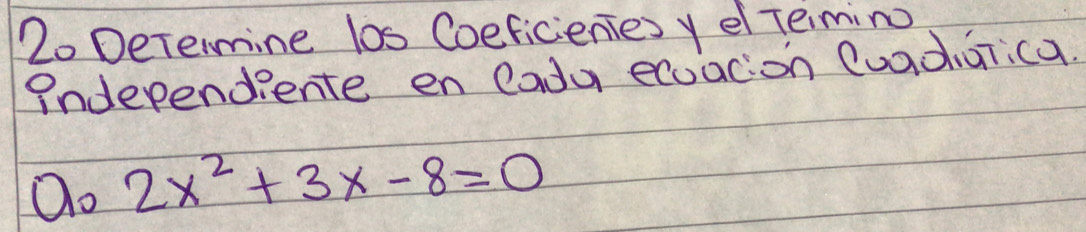 2. Determine los Coeficientes y el Termino
independiente en Cada ecuación Cuadrática.
a. 2x² + 3x - 8 = 0